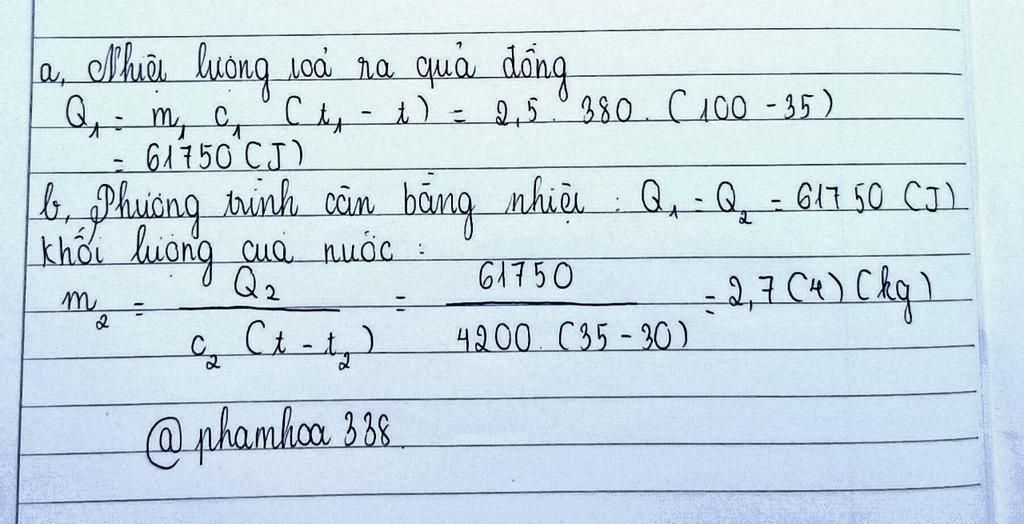 a, Nhiệt lượng toả ra quả đồng
Q₁ = m₁ c₁ (t₁ - t) = 2,5. 380. (100 - 35)
= 61750 (J)
b, Phương trình cân bằng nhiệt : Q₁ = Q₂ = 61750 (J)
khối lượng của nước :
m₂ = Q₂ / c₂ (t - t₂) = 61750 / 4200. (35 - 30) = 2,7 (4) (kg)
@ phamhoa 338.